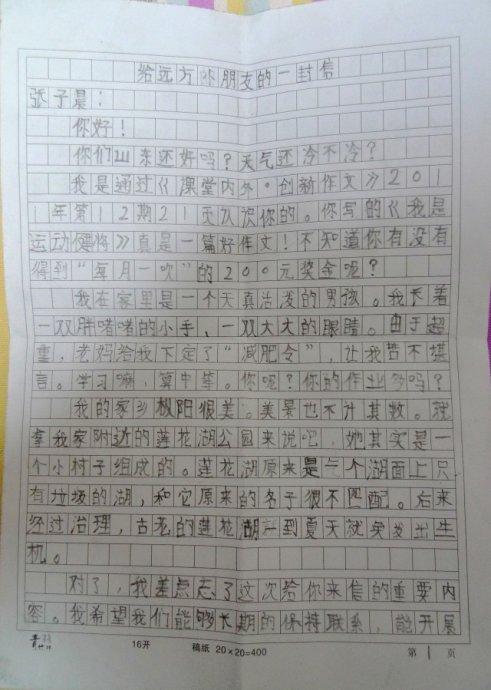 给远方小朋友的一封信
张子晨：
你好！
你们山东还好吗？天气还冷不冷？
我是通过《课堂内外·创新作文》201
1年第12期21页认识你的。你写的《我是
运动健将》真是一篇好作文！不知道你有没有
得到“每月一吹”的200元奖金呢？
我在家里是一个天真活泼的男孩。我长着
一双胖嘟嘟的小手，一双大大的眼睛。由于超
重，老妈给我下定了“减肥令”，让我苦不堪
言。学习嘛，算中等。你呢？你的作业多吗？
我的家乡枞阳很美。美景也不计其数。就
拿我家附近的莲花湖公园来说吧，她其实是一
个小村子组成的。莲花湖原来是一个湖面上只
有垃圾的湖，和它原来的名子很不匹配。后来
经过治理，古老的莲花湖一到夏天就焕发出生
机。
对了，我差点忘了这次给你来信的重要内
容。我希望我们能够长期的保持联系，能开展
16开 稿纸 20×20=400 第1页